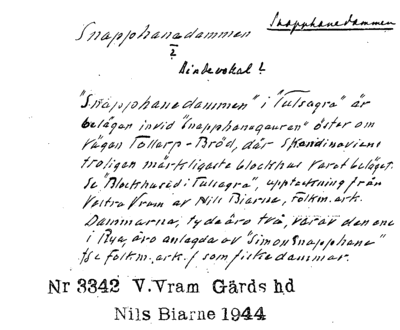 Snapphanedammen
Snapphanedammen
2
Bindevokal!
"Snapphanedammen" i "Tulsagra" är
belägen invid "Snapphanegauren" öster om
vägen Tollarp-Bröd, där Skandinaviens
troligen märkligaste blockhus varit beläget.
Se "Blockhuset i Tulsagra", uppteckning från
Västra Vram av Nils Biarne, Folkm. ark.
Dammarna, ty de äro två, varav den ene
i Rya, äro anlagda av "Simon Snapphane"
(se folkm. ark.) som fiskedammar.
Nr 3342 V.Vram Gärds hd
Nils Biarne 1944